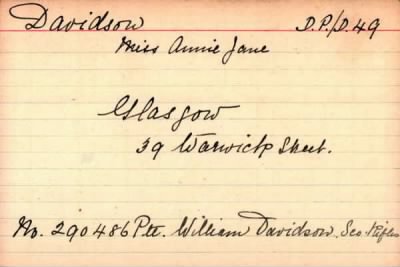 Davidson D.P./D.49
Miss Annie Jane
Glasgow
39 Warwick Street.
No. 290486 Pte. William Davidson, Sco. Rifles